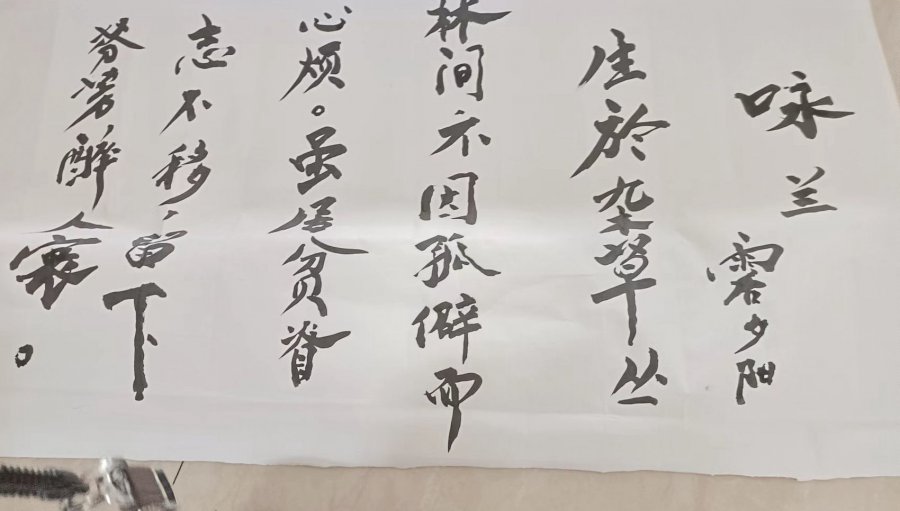 咏兰
霞夕阳
生於杂草丛
林间不因孤僻而
心烦。虽居贫脊
志不移,留下
芬芳醉
人寰。